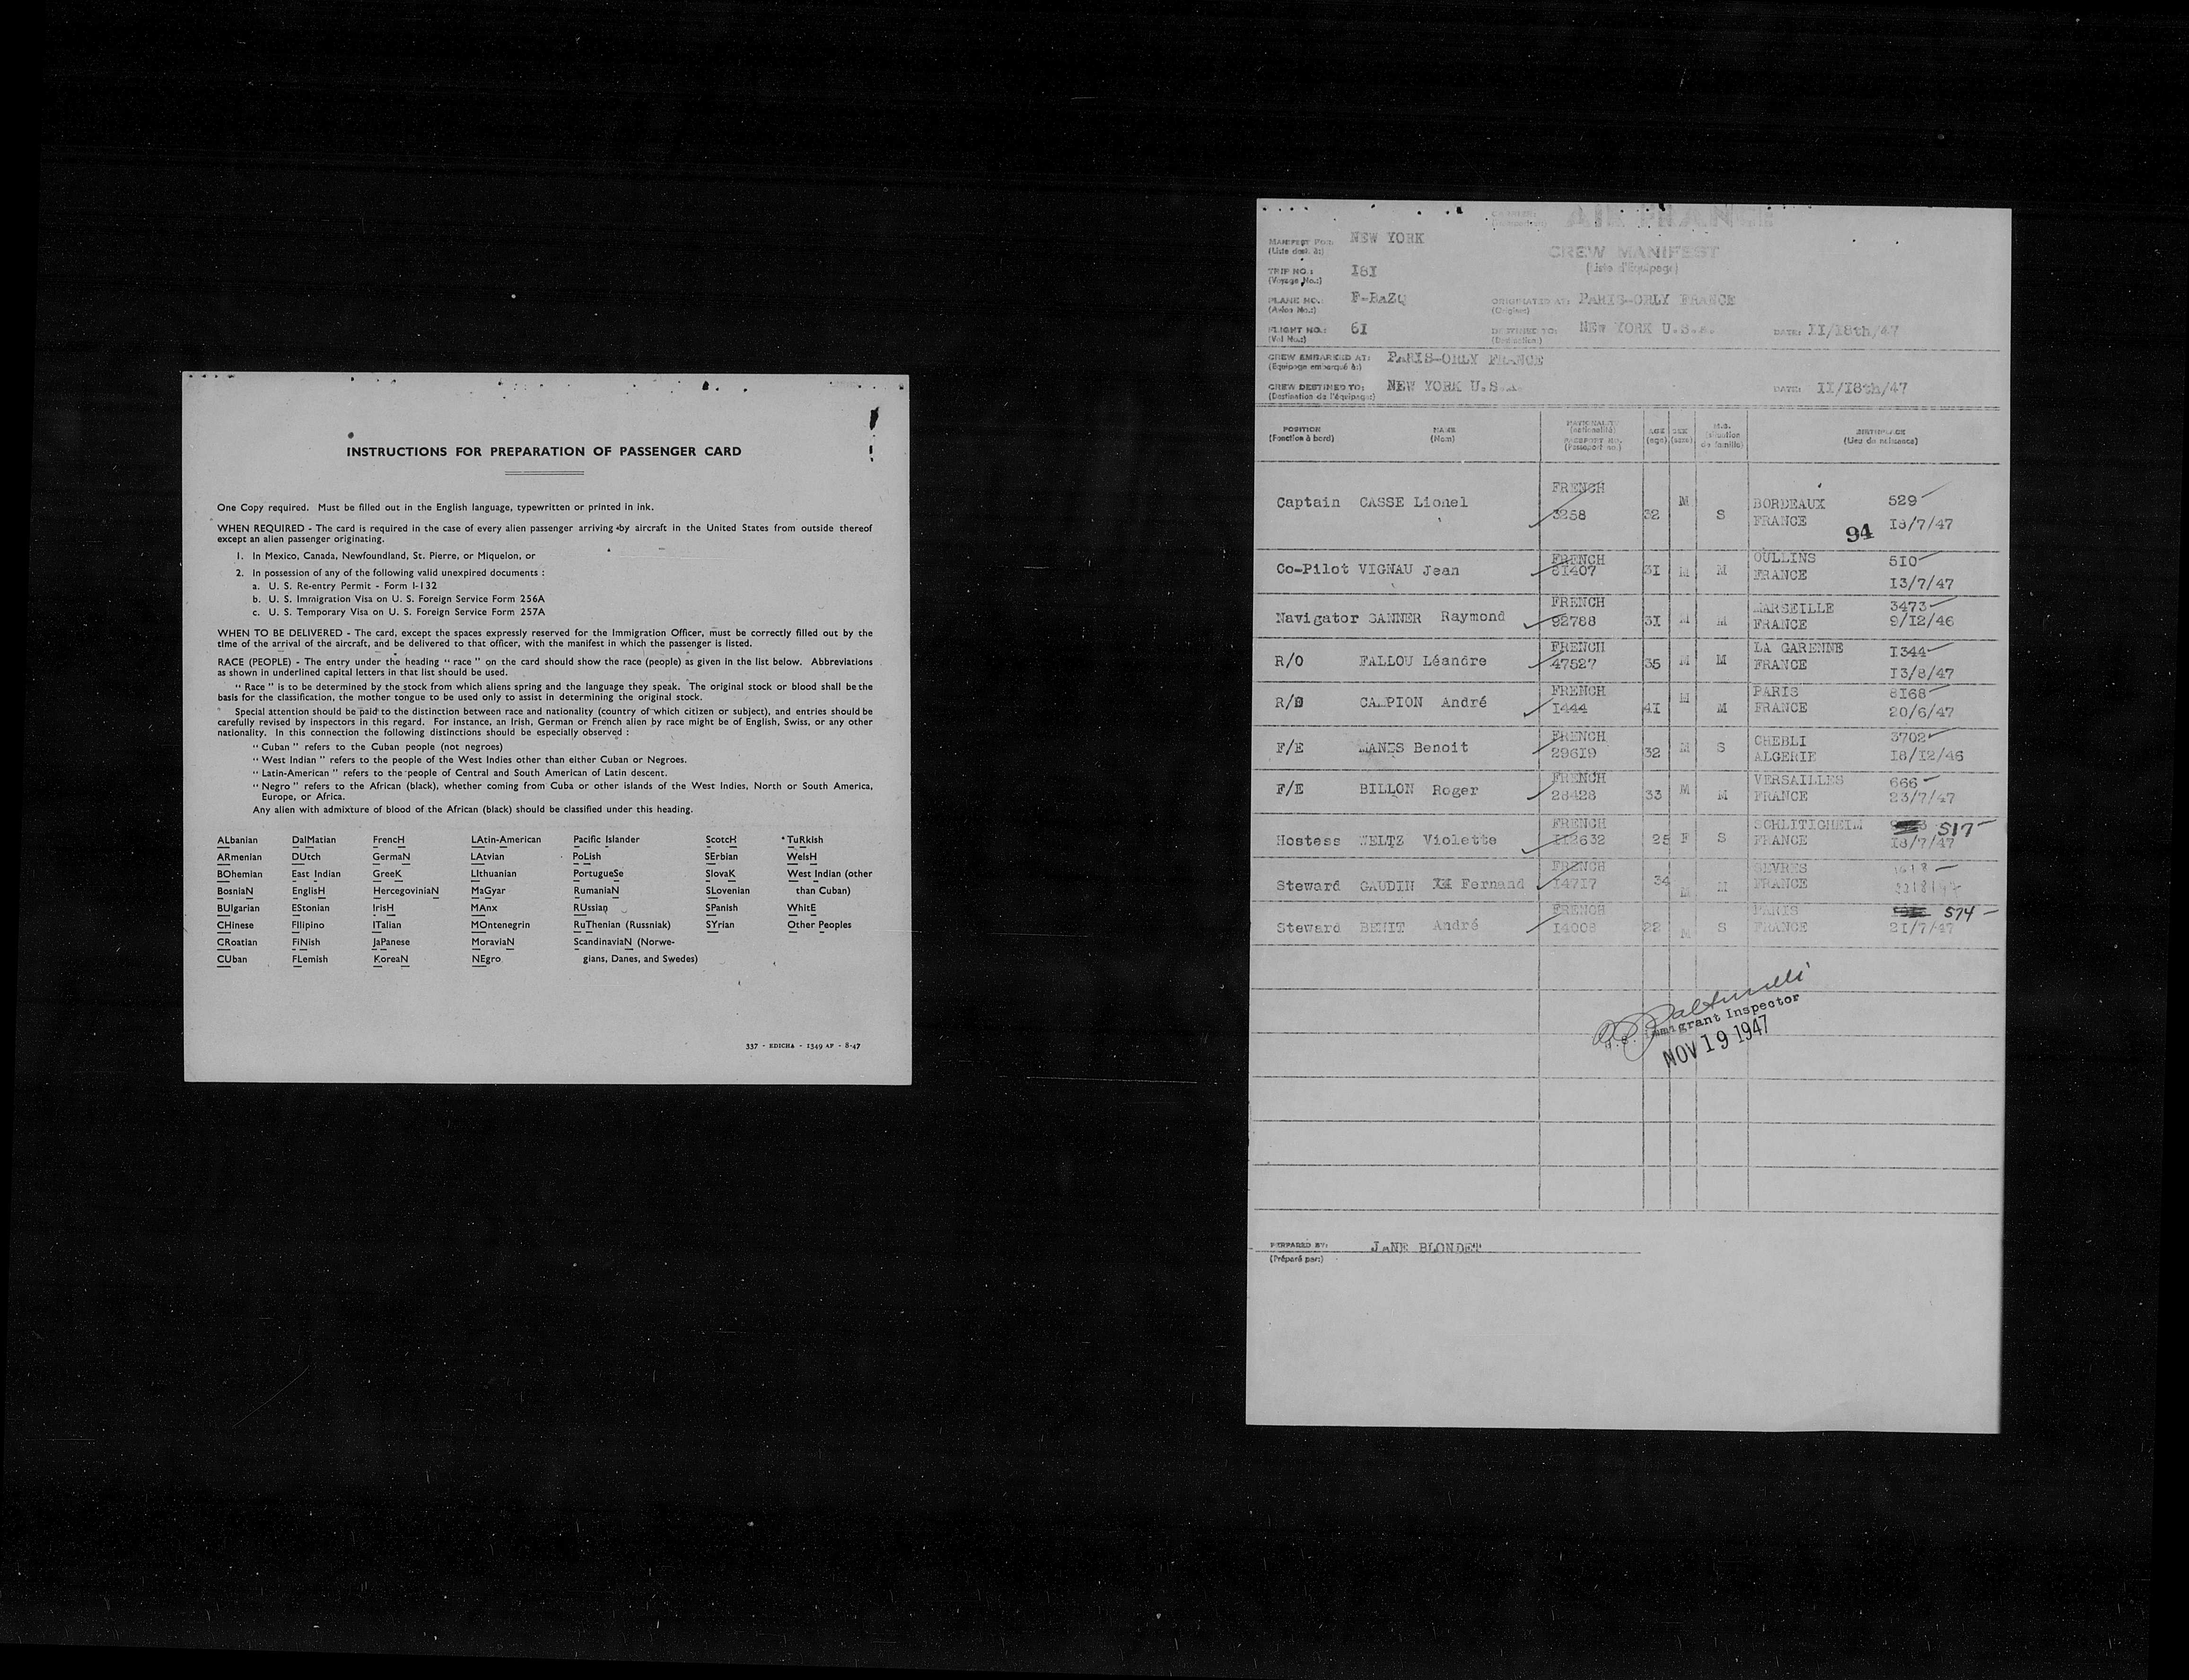 INSTRUCTIONS FOR PREPARATION OF PASSENGER CARD
One Copy required. Must be filled out in the English language, typewritten or printed in ink.
WHEN REQUIRED - The card is required in the case of every alien passenger arriving by aircraft in the United States from outside thereof
except an alien passenger originating.
1. In Mexico, Canada, Newfoundland, St. Pierre, or Miquelon, or
2. In possession of any of the following valid unexpired documents :
a. U. S. Re-entry Permit - Form I-132
b. U. S. Immigration Visa on U. S. Foreign Service Form 256A
c. U. S. Temporary Visa on U. S. Foreign Service Form 257A
WHEN TO BE DELIVERED - The card, except the spaces expressly reserved for the Immigration Officer, must be correctly filled out by the
time of the arrival of the aircraft, and be delivered to that officer, with the manifest in which the passenger is listed.
RACE (PEOPLE) - The entry under the heading " race " on the card should show the race (people) as given in the list below. Abbreviations
as shown in underlined capital letters in that list should be used.
" Race " is to be determined by the stock from which aliens spring and the language they speak. The original stock or blood shall be the
basis for the classification, the mother tongue to be used only to assist in determining the original stock.
Special attention should be paid to the distinction between race and nationality (country of which citizen or subject), and entries should be
carefully revised by inspectors in this regard. For instance, an Irish, German or French alien by race might be of English, Swiss, or any other
nationality. In this connection the following distinctions should be especially observed :
" Cuban " refers to the Cuban people (not negroes)
" West Indian " refers to the people of the West Indies other than either Cuban or Negroes.
" Latin-American " refers to the people of Central and South American of Latin descent.
" Negro " refers to the African (black), whether coming from Cuba or other islands of the West Indies, North or South America,
Europe, or Africa.
Any alien with admixture of blood of the African (black) should be classified under this heading.
ALbanian DalMatian FrencH LAtin-American Pacific Islander ScotcH TuRkish
ARmenian DUtch GermaN LAtvian PoLish SErbian WelsH
BOhemian East Indian GreeK LIthuanian PortugueSe SlovaK West Indian (other
BosniaN EnglisH HercegoviniaN MaGyar RumaniaN SLovenian than Cuban)
BUlgarian EStonian IrisH MAnx RUssian SPanish WhitE
CHinese FIlipino ITalian MOntenegrin RuThenian (Russniak) SYrian Other Peoples
CRoatian FiNish JaPanese MoraviaN ScandinaviaN (Norwe-
CUban FLemish KoreaN NEgro gians, Danes, and Swedes)
337 - EDICHA - 1349 AF - 8-47
AIR FRANCE
MANIFEST FOR: NEW YORK
(Liste dest. à:)
CREW MANIFEST
(Liste d'Équipage)
TRIP NO.: I6I
(Voyage No.:)
PLANE NO.: F-BAZQ ORIGINATED AT: PARIS-ORLY FRANCE
(Avion No.:) (Origine:)
FLIGHT NO.: 6I DESTINED TO: NEW YORK U.S.A. DATE: II/I8th/47
(Vol No.:) (Destination:)
CREW EMBARKED AT: PARIS-ORLY FRANCE
(Équipage embarqué à:)
CREW DESTINED TO: NEW YORK U.S.A. DATE: II/I8th/47
(Destination de l'équipage:)
POSITION NAME NATIONALITY AGE SEX M.S. BIRTHPLACE
(Fonction à bord) (Nom) (nationalité) (age) (sexe) (situation de famille) (Lieu de naissance)
PASSPORT NO.
(Passeport no.)
FRENCH
Captain CASSE Lionel 3258 32 M S BORDEAUX 529
FRANCE 94 I8/7/47
FRENCH OULLINS 5I0
Co-Pilot VIGNAU Jean 8I407 3I M M FRANCE I3/7/47
FRENCH MARSEILLE 3473
Navigator SANNER Raymond 92788 3I M M FRANCE 9/I2/46
FRENCH LA GARENNE I344
R/O FALLOU Léandre 47527 35 M M FRANCE I3/8/47
FRENCH PARIS 8I68
R/O CAMPION André I444 4I M M FRANCE 20/6/47
FRENCH CHEBLI 3702
F/E MANES Benoit 296I9 32 M S ALGERIE I8/I2/46
FRENCH VERSAILLES 666
F/E BILLON Roger 28428 33 M M FRANCE 23/7/47
FRENCH SCHLITIGHEIM 517
Hostess WELTZ Violette II2632 25 F S FRANCE I8/7/47
FRENCH SEVRES
Steward GAUDIN Fernand I47I7 34 M M FRANCE
FRENCH PARIS 574
Steward BENIT André I4008 22 M S FRANCE 2I/7/47
U.S. Immigrant Inspector
NOV 19 1947
PREPARED BY: JANE BLONDET
(Préparé par:)